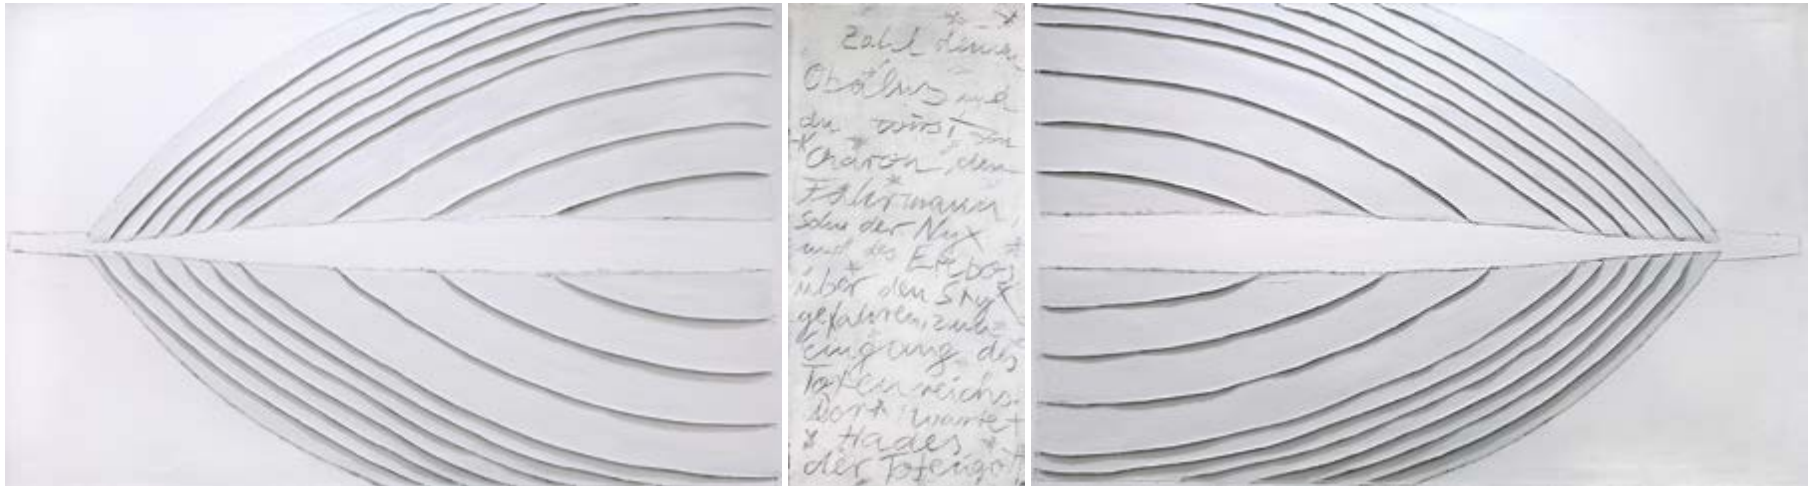 Zahl deinen
Obolus und
du wirst von
Charon, dem
Fährmann,
Sohn der Nyx
und des Erebos
über den Styx
gefahren, zum
Eingang des
Totenreichs.
Dort wartet
Hades
der Totengott